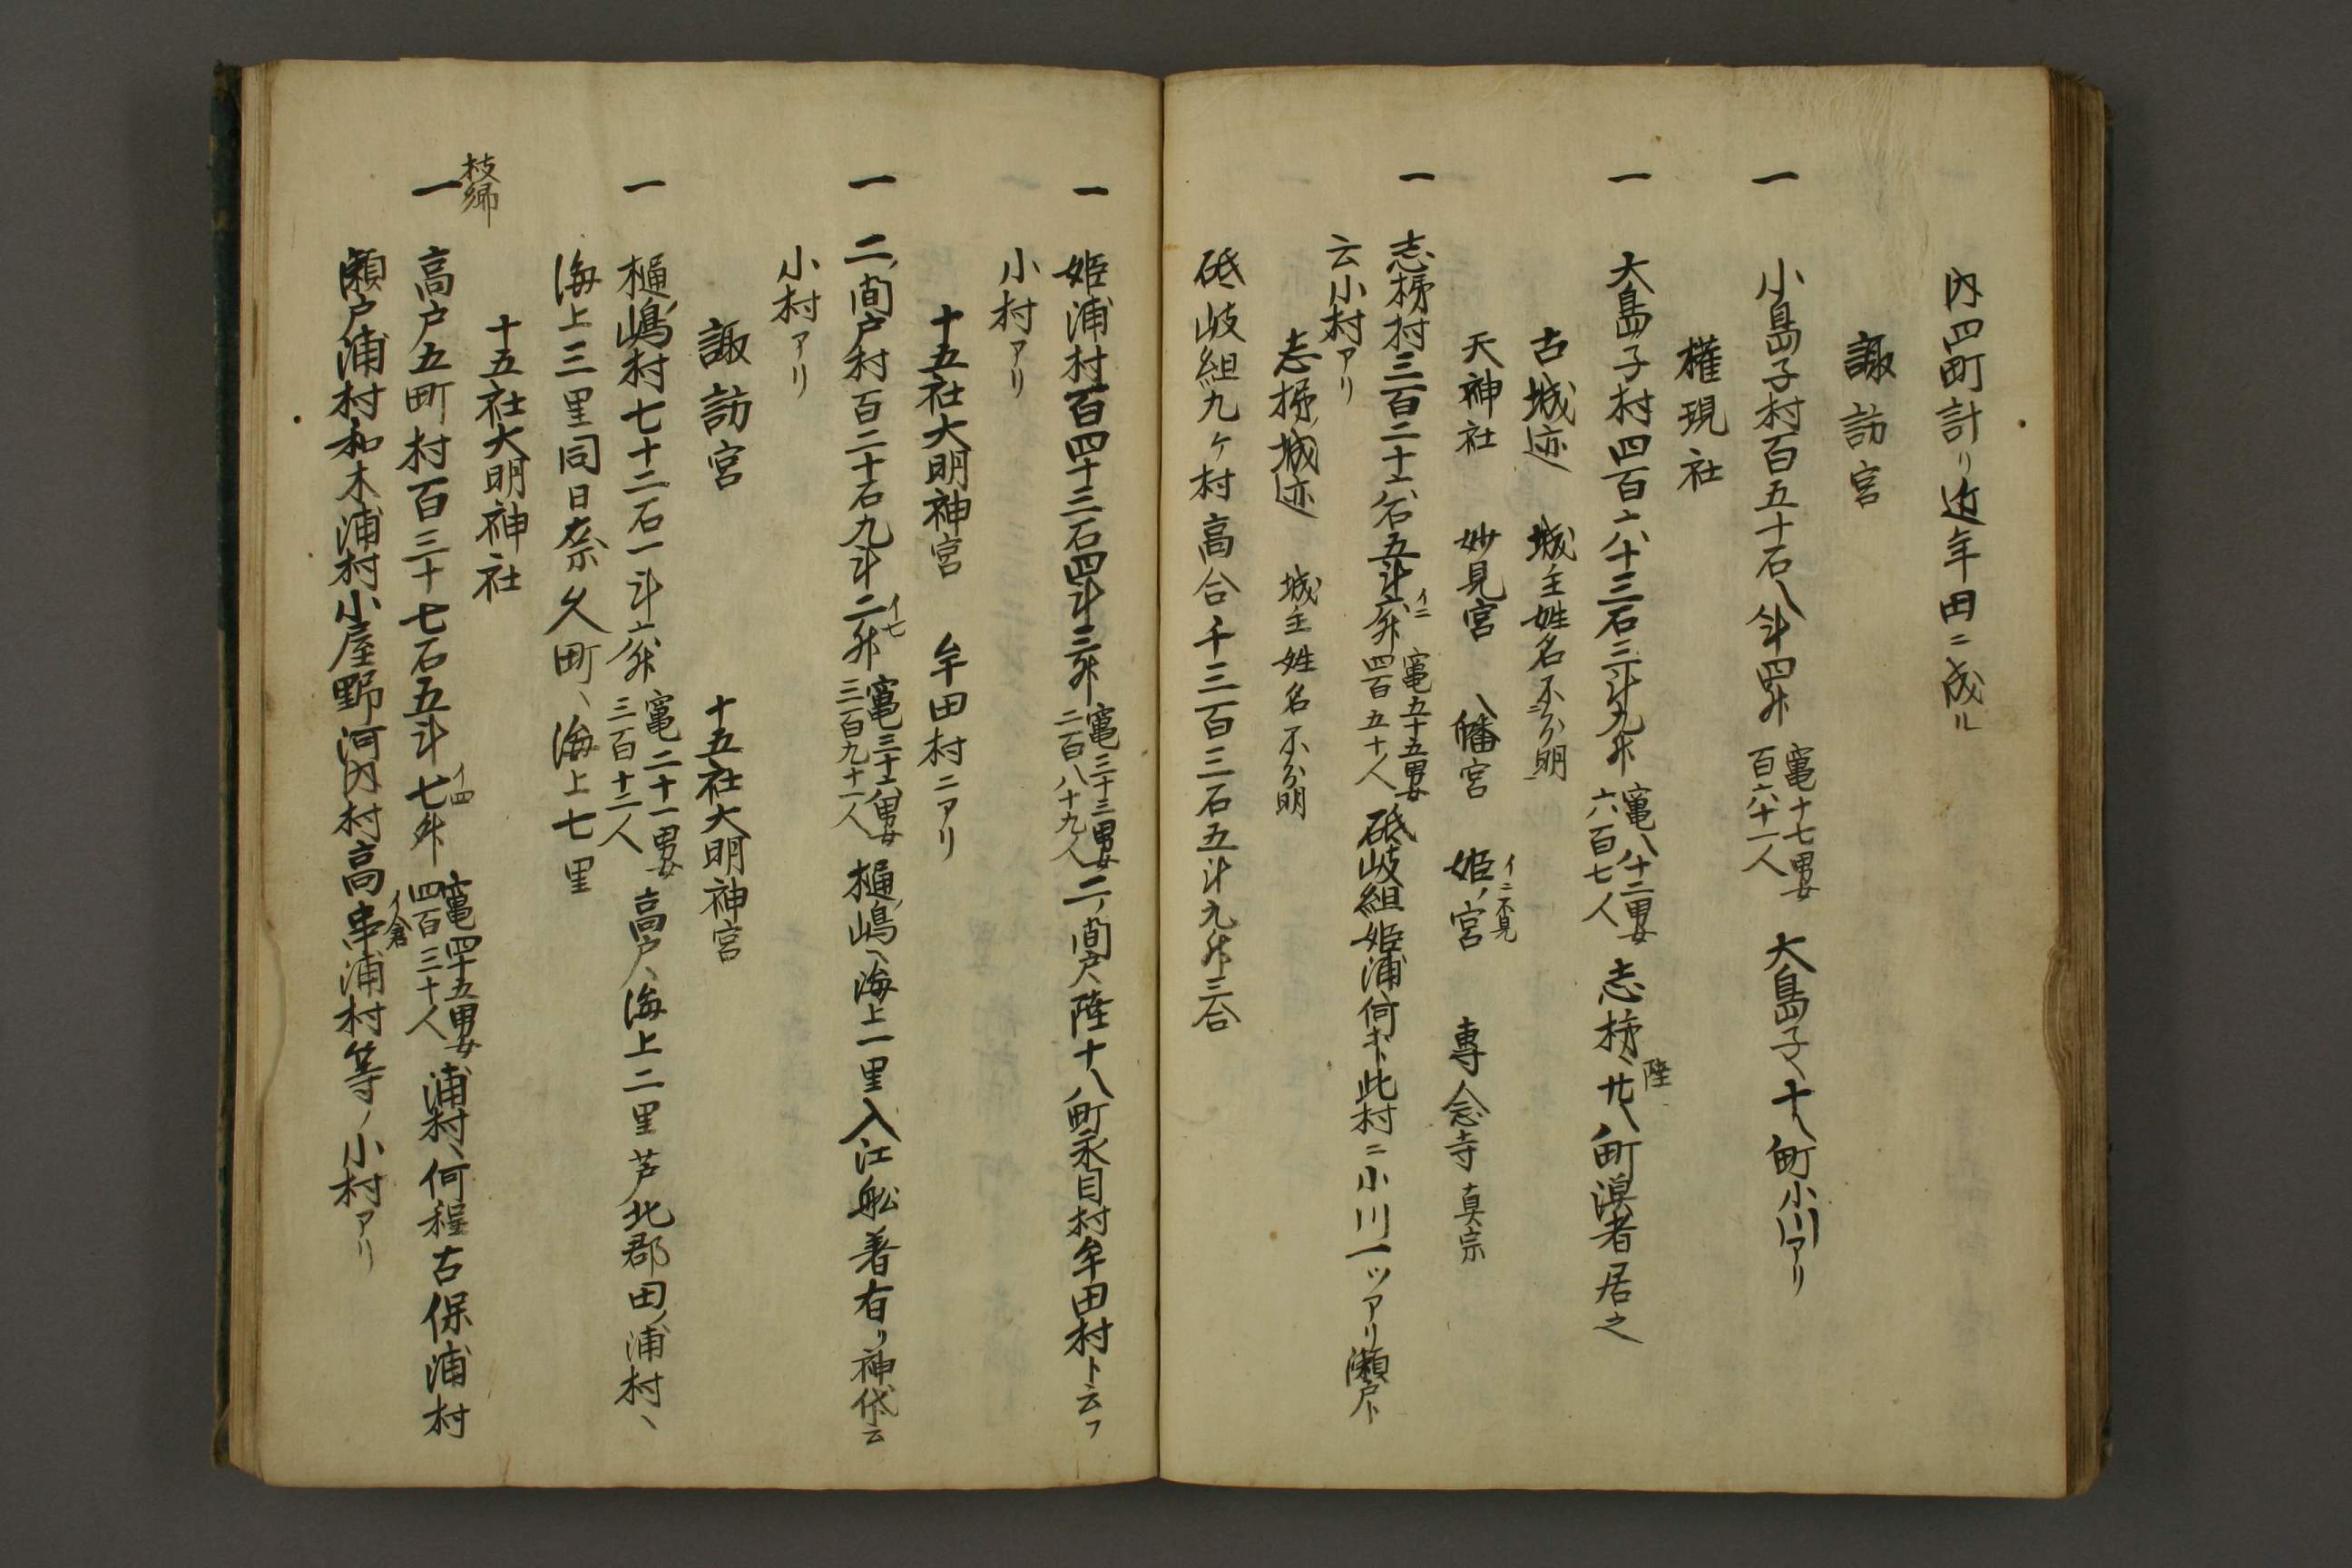 内四町計リ近年田ニ成ル
諏訪宮
一 小島子村百五十石八斗四升 竃十七男女百六十一人 大島子ヘ十八町小川アリ
権現社
一 大島子村四百六十三石三斗九升 竃八十二男女六百七人 志柿ヘ陸廿八町漁者居之
古城迹 城主姓名不分明
天神社 妙見宮 八幡宮 姫ノ宮イニ不見 専念寺真宗
一 志柿村三百二十六石五斗六升イニ 竃五十五男女四百五十人 砥岐組姫浦ヘ何ホト此村ニ小川一ツアリ瀬戸ト
云小村アリ
志柿ノ城迹 城主姓名不分明
砥岐組九ケ村高合千三百三石五斗九升三合
一 姫浦村百四十三石四斗三升 竃三十三男女二百八十九人 二ノ間戸ヘ陸十八町永目村牟田村ト云フ
小村アリ
十五社大明神宮 牟田村ニアリ
一 二ノ間戸村百二十石九斗二升イ七 竃三十六男女三百九十一人 樋ノ嶋ヘ海上一里入江舩着有リ神代云
小村アリ
諏訪宮 十五社大明神宮
一 樋ノ嶋村七十二石一斗六升 竃二十一男女三百十二人 高戸ヘ海上二里芦北郡田ノ浦村ヘ
海上三里同日奈久町ヘ海上七里
十五社大明神社
枝郷
一 高戸五町村百三十七石五斗七升イ四 竃四十五男女四百三十人 浦村ヘ何程古保浦村
瀬戸浦村和木浦村小屋野河内村高串イ倉浦村等ノ小村アリ